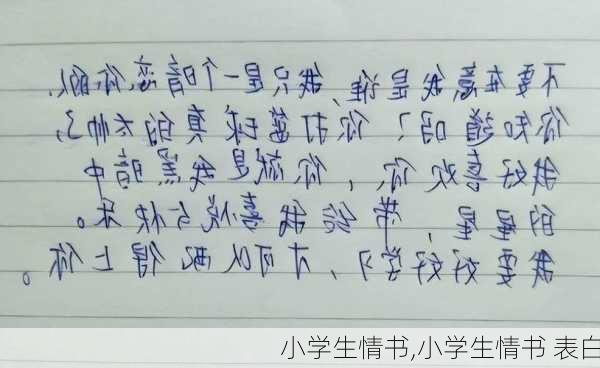 不要在意我是谁,我只是一个暗恋你的人,
你知道吗?你打篮球真的太帅了,
我好喜欢你,你就是我黑暗中
的星星,带给我喜悦与快乐。
我要好好学习,才可以配得上你。
小学生情书,小学生情书 表白